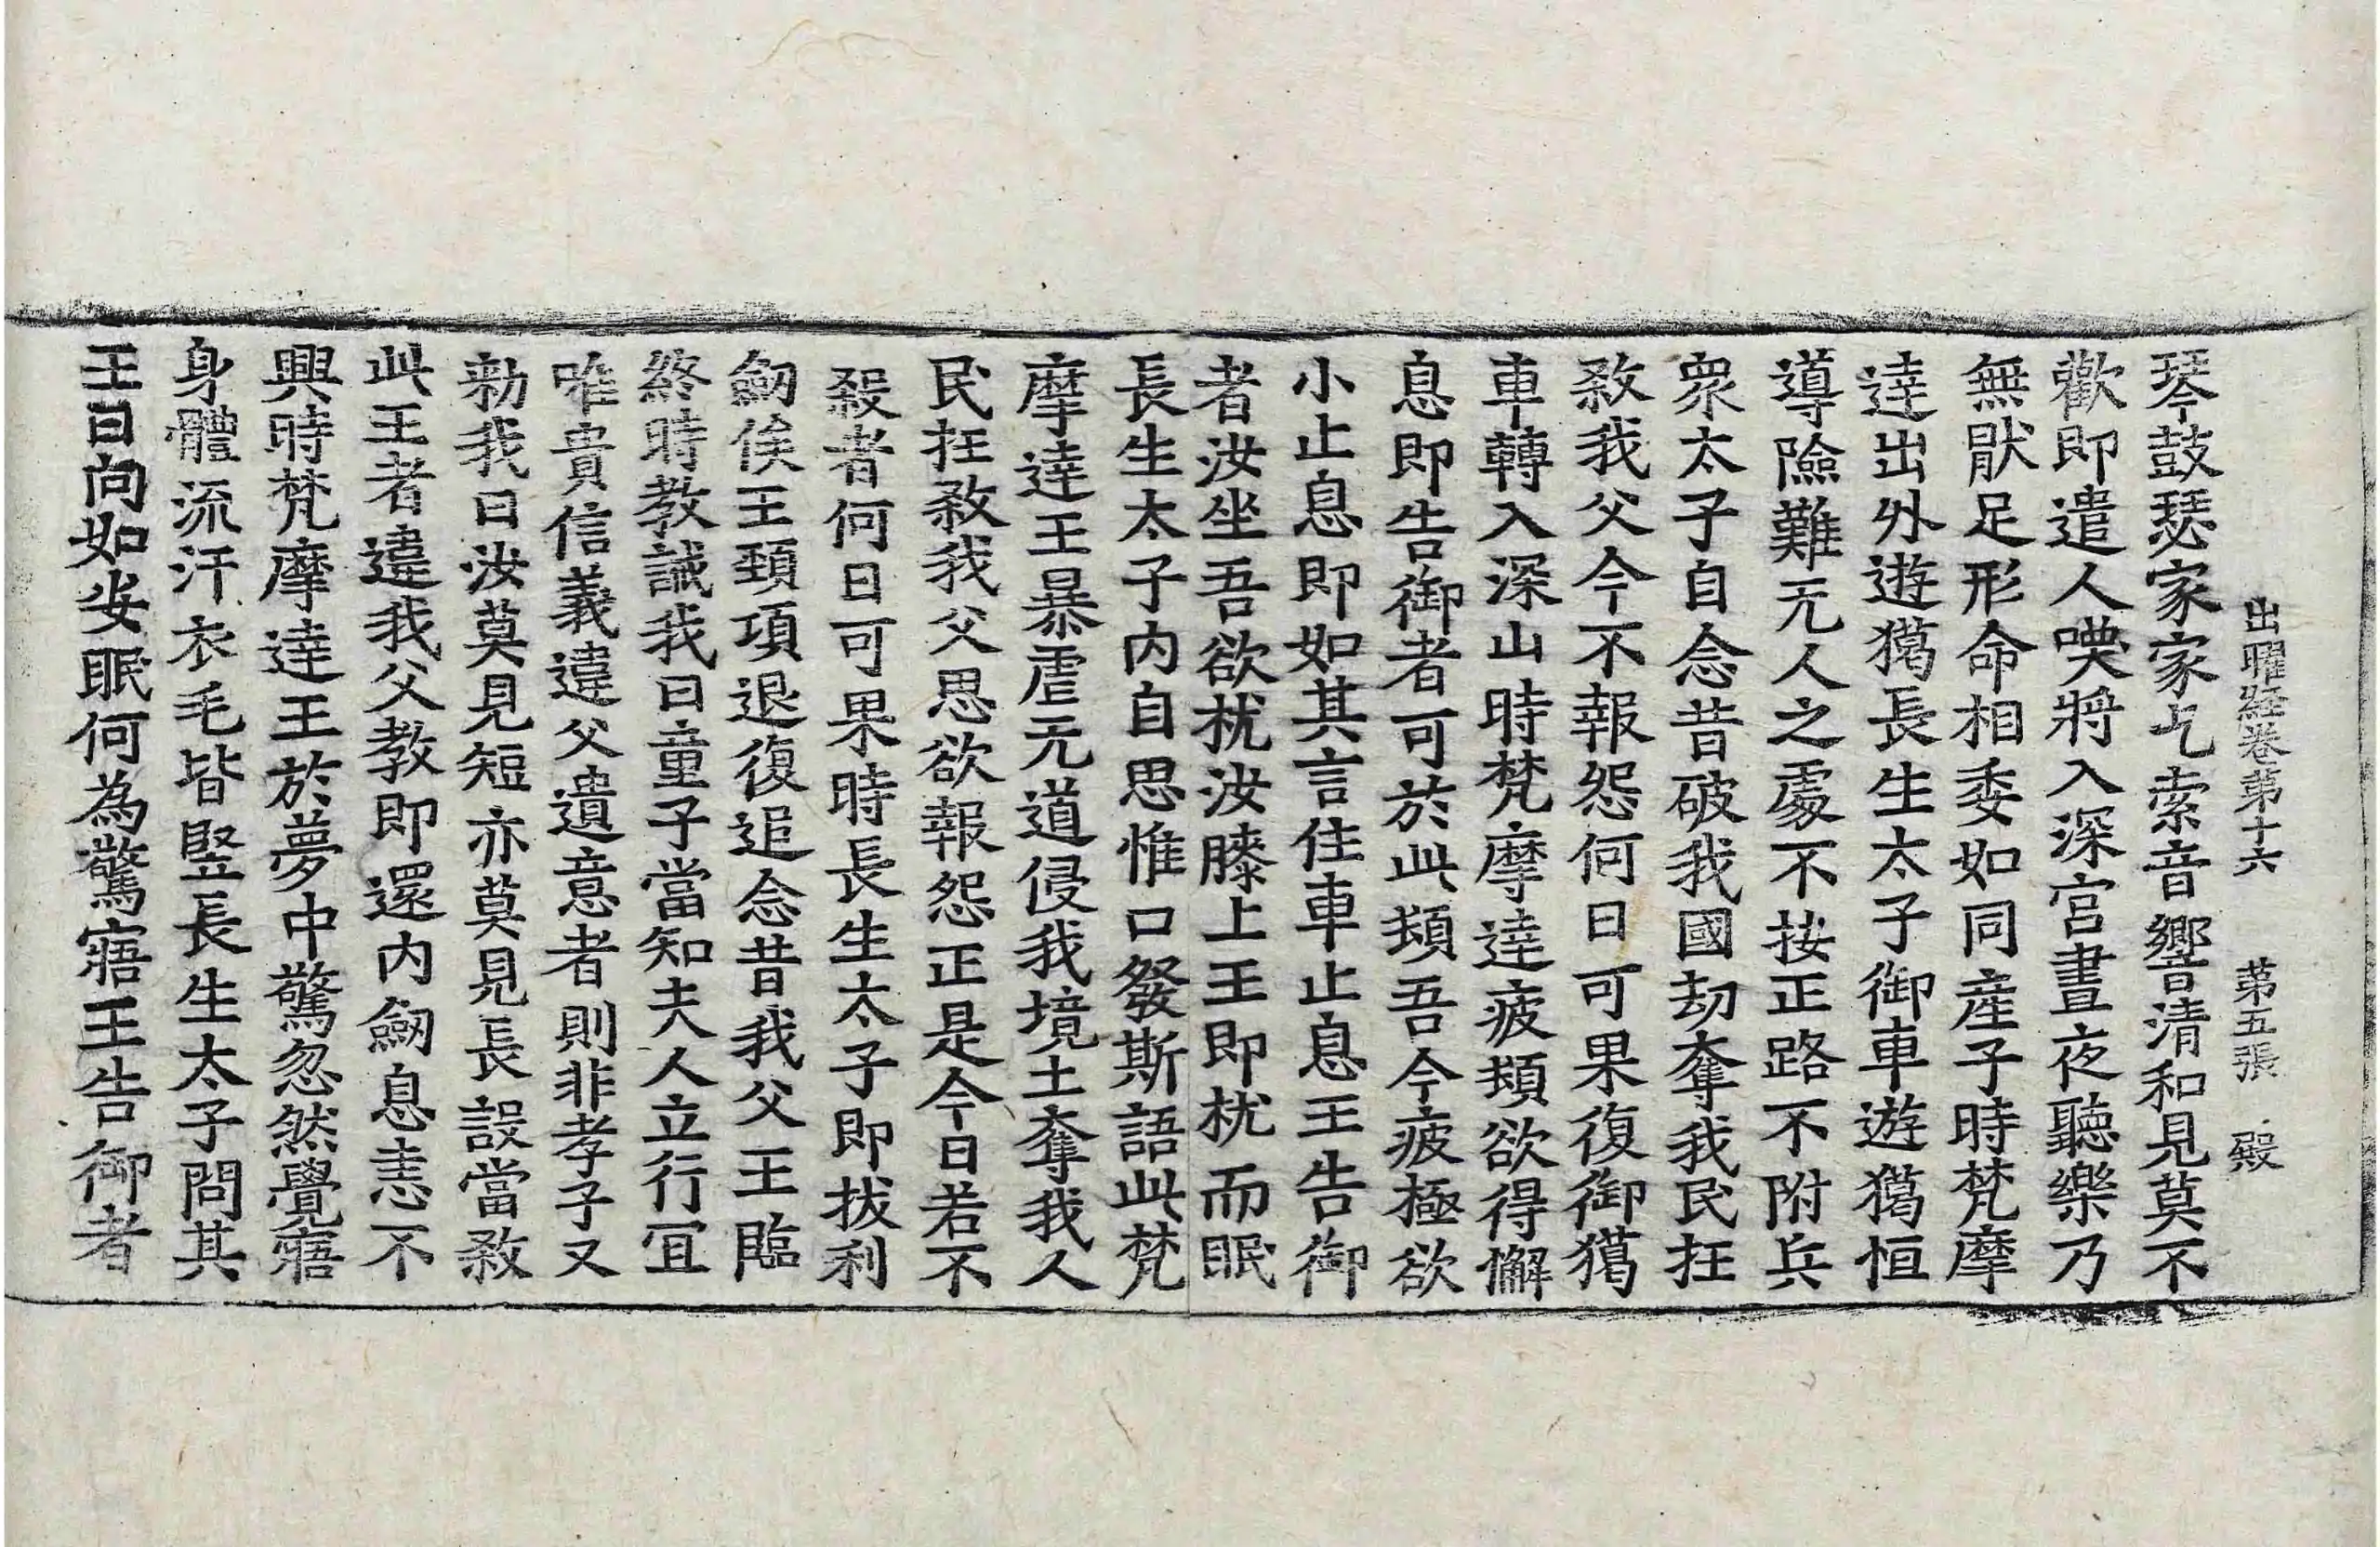 出曜經卷第十六 第五張 殿
琴鼓瑟家家乞索音響清和見莫不
歡即遣人喚將入深宮晝夜聽樂乃
無猒足形命相委如同産子時梵摩
達出外遊獦長生太子御車遊獦恒
導險難无人之處不按正路不附兵
衆太子自念昔破我國劫奪我民抂
煞我父今不報怨何日可果復御獦
車轉入深山時梵摩達疲頓欲得懈
息即告御者可於此頓吾今疲極欲
小止息即如其言住車止息王告御
者汝坐吾欲枕汝膝上王即枕而眠
長生太子内自思惟口發斯語此梵
摩達王暴虐无道侵我境土奪我人
民抂煞我父思欲報怨正是今日若不
殺者何日可果時長生太子即拔利
劒俟王頸項退復追念昔我父王臨
終時教誡我曰童子當知夫人立行冝
唯貴信義違父遺意者則非孝子又
勑我曰汝莫見短亦莫見長設當煞
此王者違我父教即還内劒息恚不
興時梵摩達王於夢中驚忽然覺寤
身體流汗衣毛皆竪長生太子問其
王曰向如安眠何為驚寤王告御者